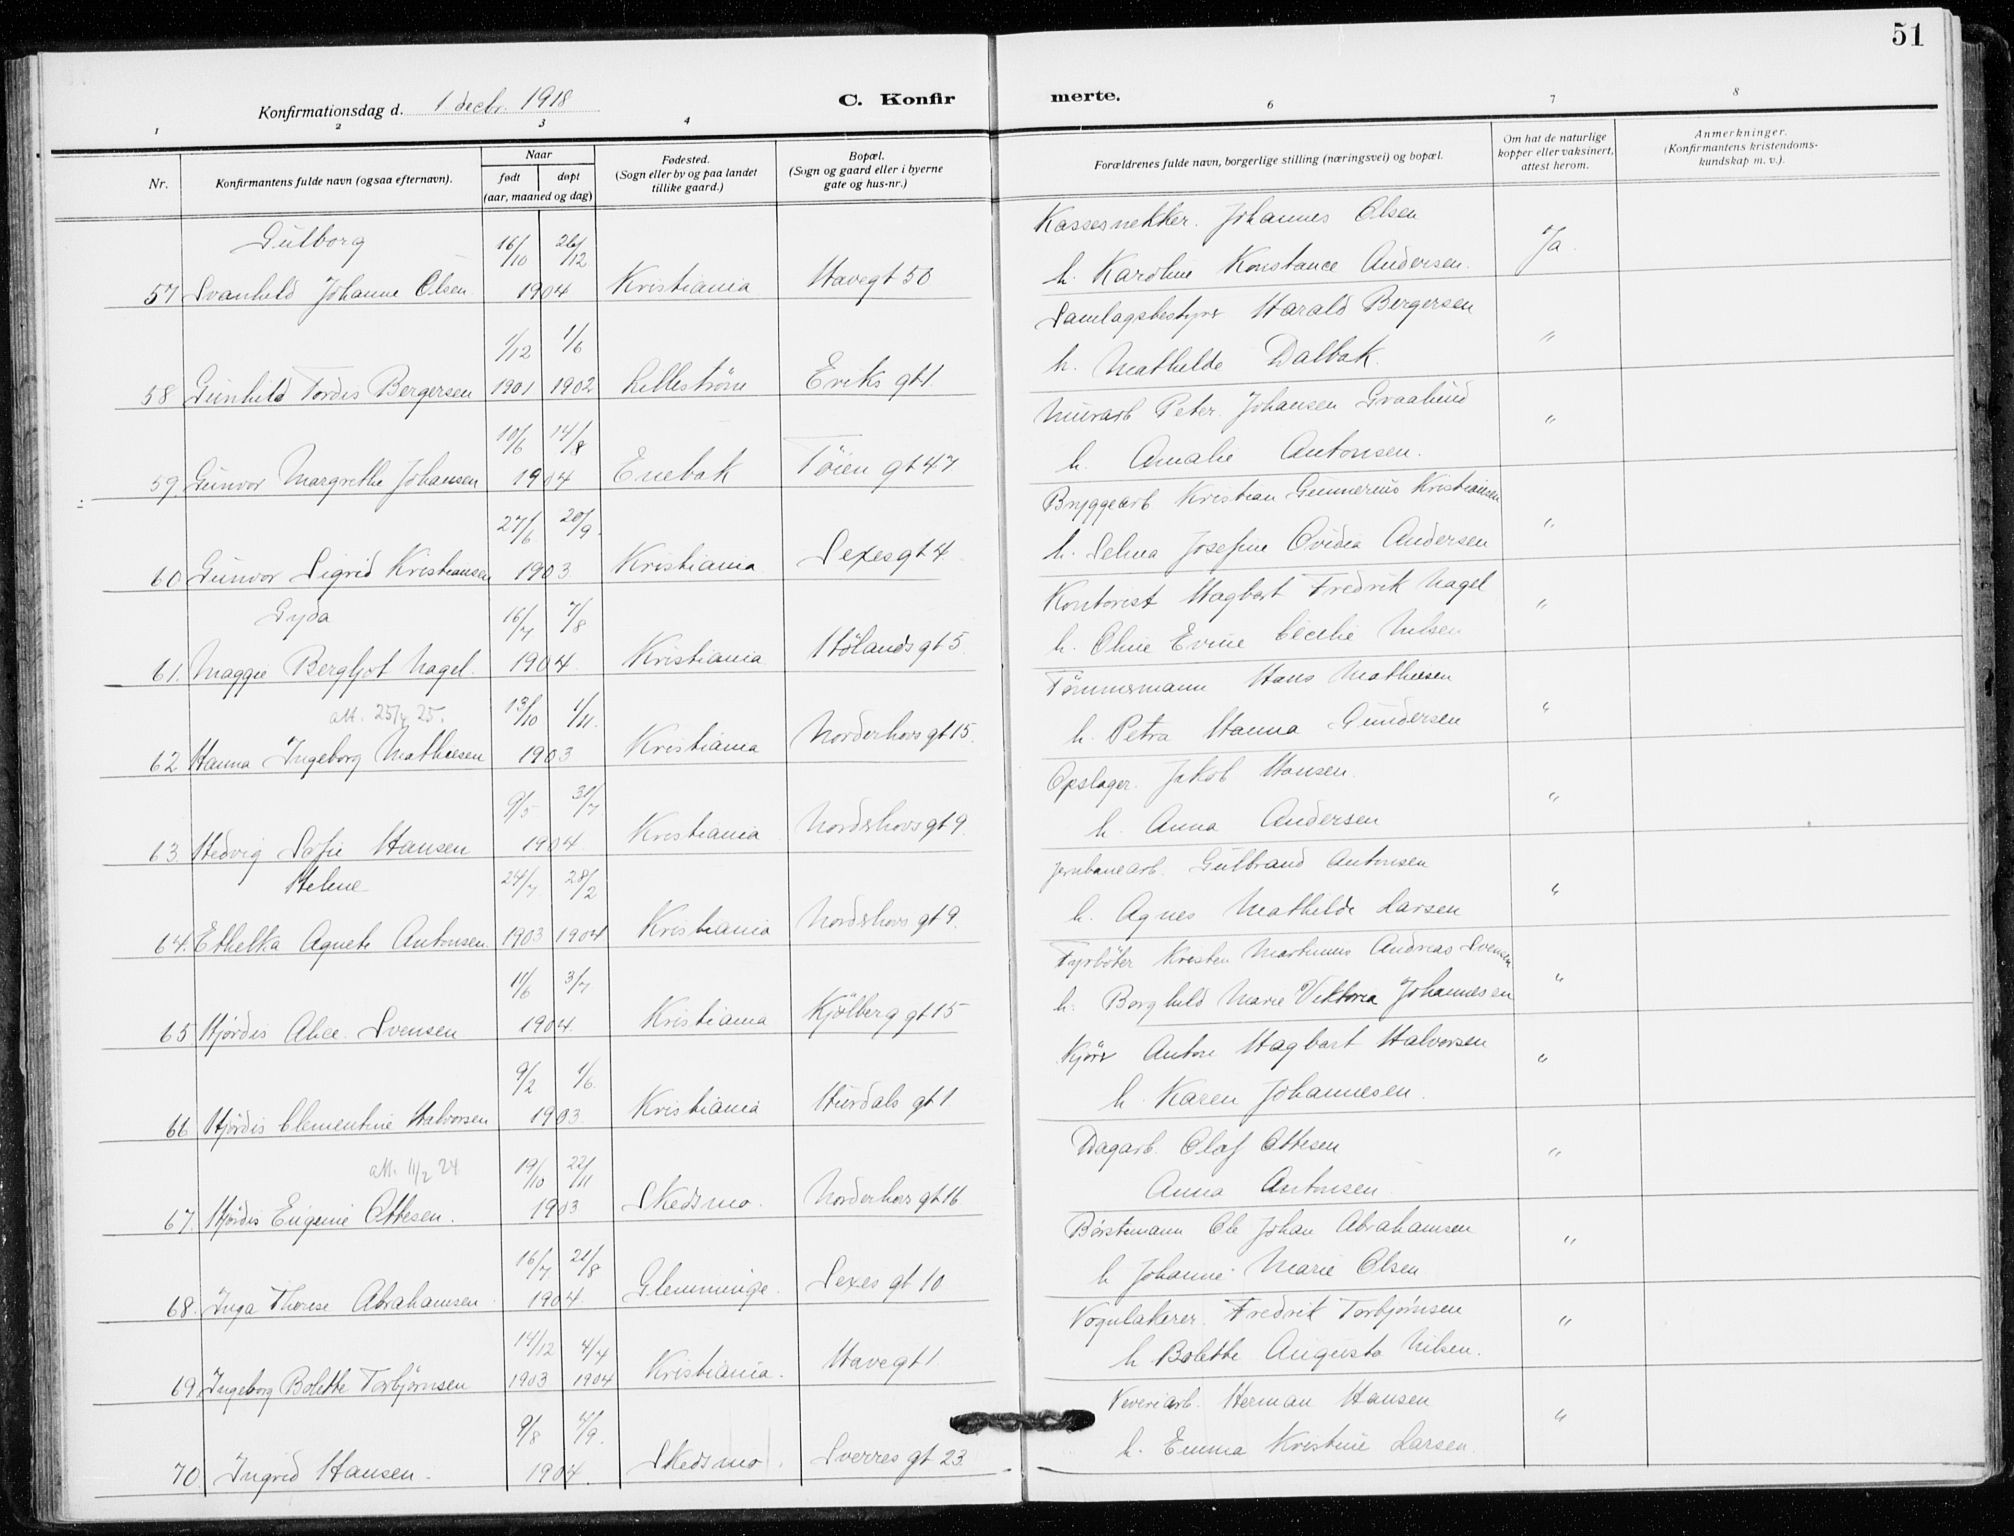 51
Konfirmationsdag d. 1. decbr. 1918
C. Konfirmerte.
1 2 3 4 6 7 8
Nr.
Konfirmantens fulde navn (ogsaa efternavn).
Naar
født
døpt
(aar, maaned og dag)
Fødested.
(Sogn eller by og paa landet
tillike gaard.)
Bopæl.
(Sogn og gaard eller i byerne
gate og hus-nr.)
Forældrenes fulde navn, borgerlige stilling (næringsvei) og bopæl.
Om hat de naturlige
kopper eller vaksinert,
attest herom.
Anmerkninger.
(Konfirmantens kristendoms-
kundskap m. v.).
Gulborg 16/10 26/12 Kassesnekker. Johannes Olsen Ja.
57 Svanhild Johanne Olsen 1904 Kristiania Havegt 50 h. Karoline Konstance Andersen.
1/12 1/6 Samlagsbestyrer Harald Bergersen "
58 Gunhild Tordis Bergersen 1901 1902 Lillestrøm Eriks gt 1. h. Mathilde Dalbak.
10/6 14/8 Murarb Peter Johansen Graalund "
59 Gunvor Margrethe Johansen 1904 Enebak Tøien gt 47 h. Amalie Antonsen.
27/6 20/9. Bryggearb Kristian Gunnerius Kristiansen "
60 Gunvor Sigrid Kristiansen 1903 Kristiania Sexesgt 4 h. Selma Josefine Ovidia Andersen
Gyda 16/7 7/8 Kontorist Hagbart Fredrik Nagel "
61. Maggie Bergljot Nagel. 1904. Kristiania Hølandsgt 5. h. Oline Evine Cecilie Nilsen
att. 25/7 25. 13/10 1/11. Tømmermann Hans Mathiesen "
62 Hanna Ingeborg Mathiesen 1903 Kristiania Norderhovsgt 15. h. Petra Hanna Gundersen
9/5 31/7 Opslager. Jakob Hansen. "
63 Hedvig Sofie Hansen 1904. Kristiania Nordrhovsgt 9. h. Anna Andersen
Helene 24/7 28/2 Jernbanearb. Gulbrand Antonsen "
64. Ethelka Agnete Antonsen 1903 1904 Kristiania Nordrhovs gt 9. h. Agnes Mathilde Larsen
11/6 3/7 Fyrbøter Kristen Martinius Andreas Svensen "
65 Hjørdis Alice. Svensen 1904. Kristiania Kjølberg gt 15 h. Borghild Marie Viktoria Johannesen
9/2 1/6. Kjørr Anton Hagbart Halvorsen "
66 Hjørdis Clementine Halvorsen 1903. Kristiania Hurdals gt 1. h. Karen Johannesen.
att. 11/2 24 19/10 22/11 Dagarb. Olaf Ottesen "
67. Hjørdis Eugenie Ottesen. 1903 Skedsmo. Norderhovs gt 16 Anna Antonsen
16/7 21/8 Børstemann Ole Johan Abrahamsen "
68. Inga Therese Abrahamsen 1904. Glemminge. Sexes gt 10 h Johanne Marie Olsen
14/12 4/4 Vognlakerer. Fredrik Torbjørnsen "
69 Ingeborg Bolette Torbjørnsen 1903 1904 Kristiania. Havegt 1. h. Bolette Augusta Nilsen.
9/8 4/9. Veveriarb. Herman Hansen "
70. Ingrid Hansen. 1904. Skedsmo. Sverres gt 23. h. Emma Kristine Larsen.